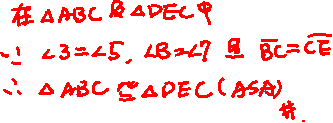 在 △ABC 與 △DEC 中
∵ ∠3=∠5, ∠B=∠7 且 BC=CE
∴ △ABC ≅ △DEC (ASA)